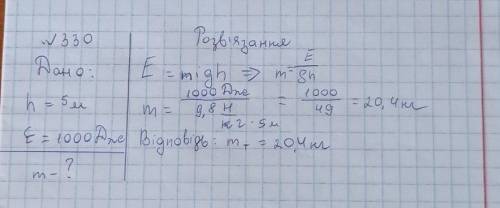 №330
Дано:
h = 5м
E = 1000 Дж
m - ?
Розв'язання
E = mgh => m = E/gh
m = 1000 Дж / 9,8 Н/кг · 5м = 1000/49 = 20,4 кг
Відповідь: m = 20,4 кг